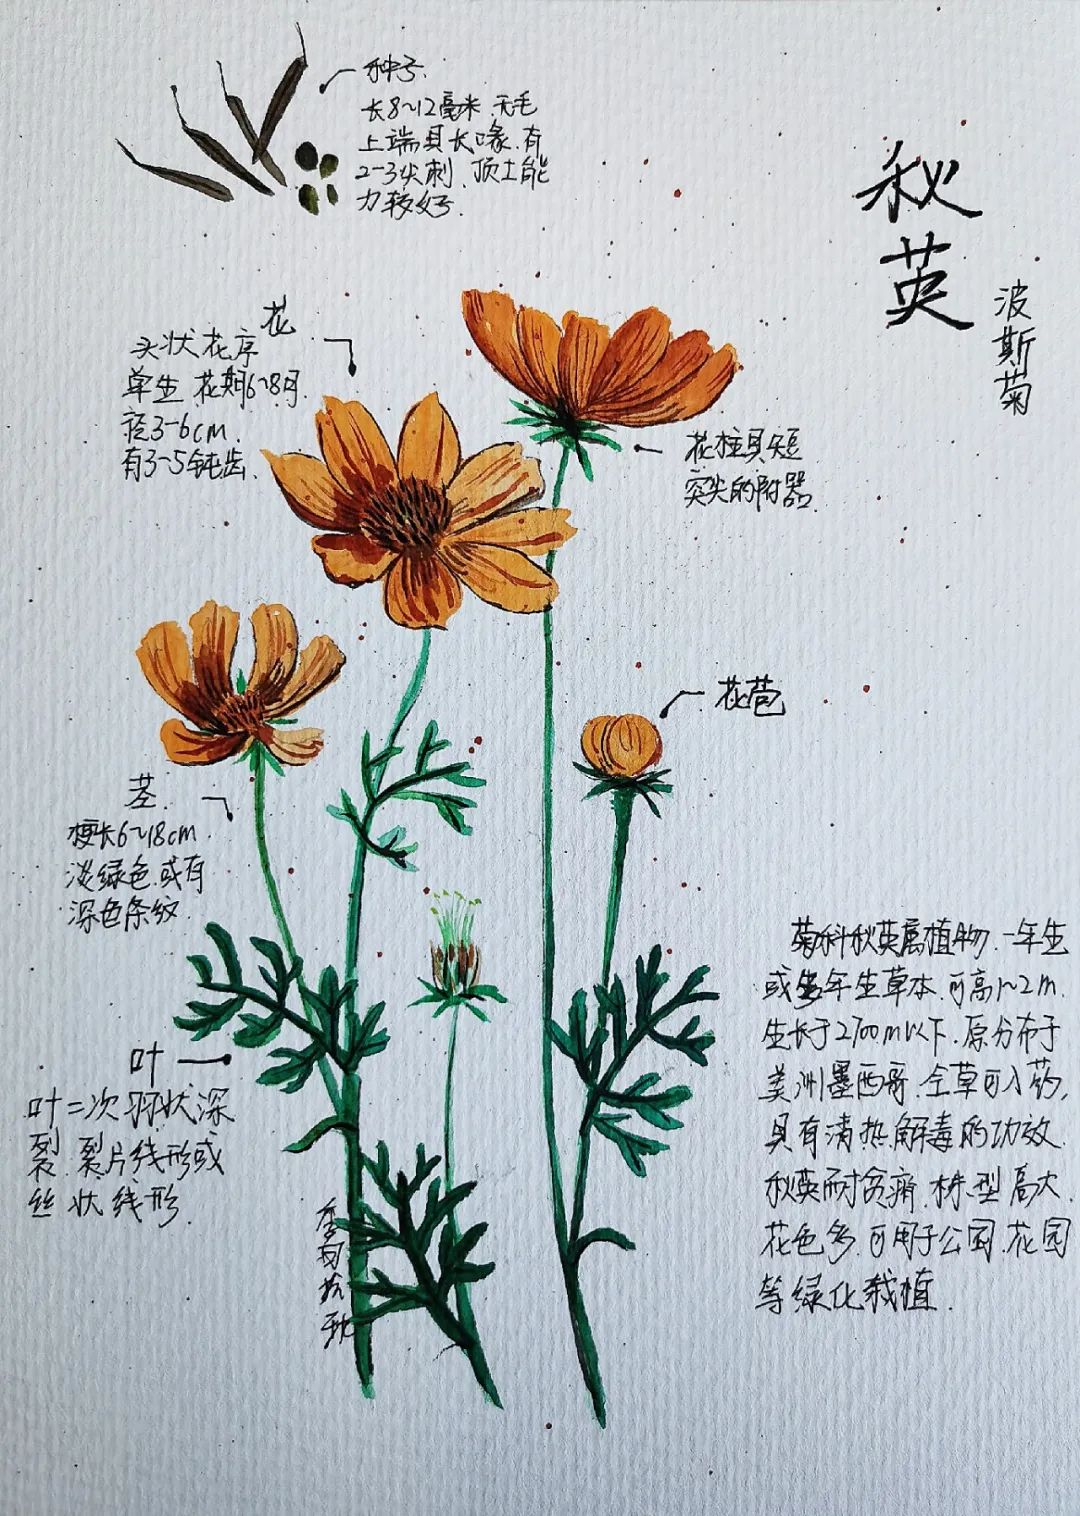 种子
长8~12毫米.无毛
上端具长喙.有
2-3尖刺.顶土能
力较好.
秋英
波斯菊
花
头状花序
单生 花期6~8月.
径3-6cm.
有3-5钝齿.
花柱具短
突尖的附器.
花苞
茎.
梗长6~18cm
淡绿色.或有
深色条纹.
叶
叶二次羽状深
裂.裂片线形或
丝状线形.
菊科秋英属植物.一年生
或多年生草本.可高1~2m.
生长于2700m以下.原分布于
美洲墨西哥.全草可入药,
具有清热.解毒的功效.
秋英耐贫瘠.株型高大.
花色多.可用于公园.花园
等绿化栽植.